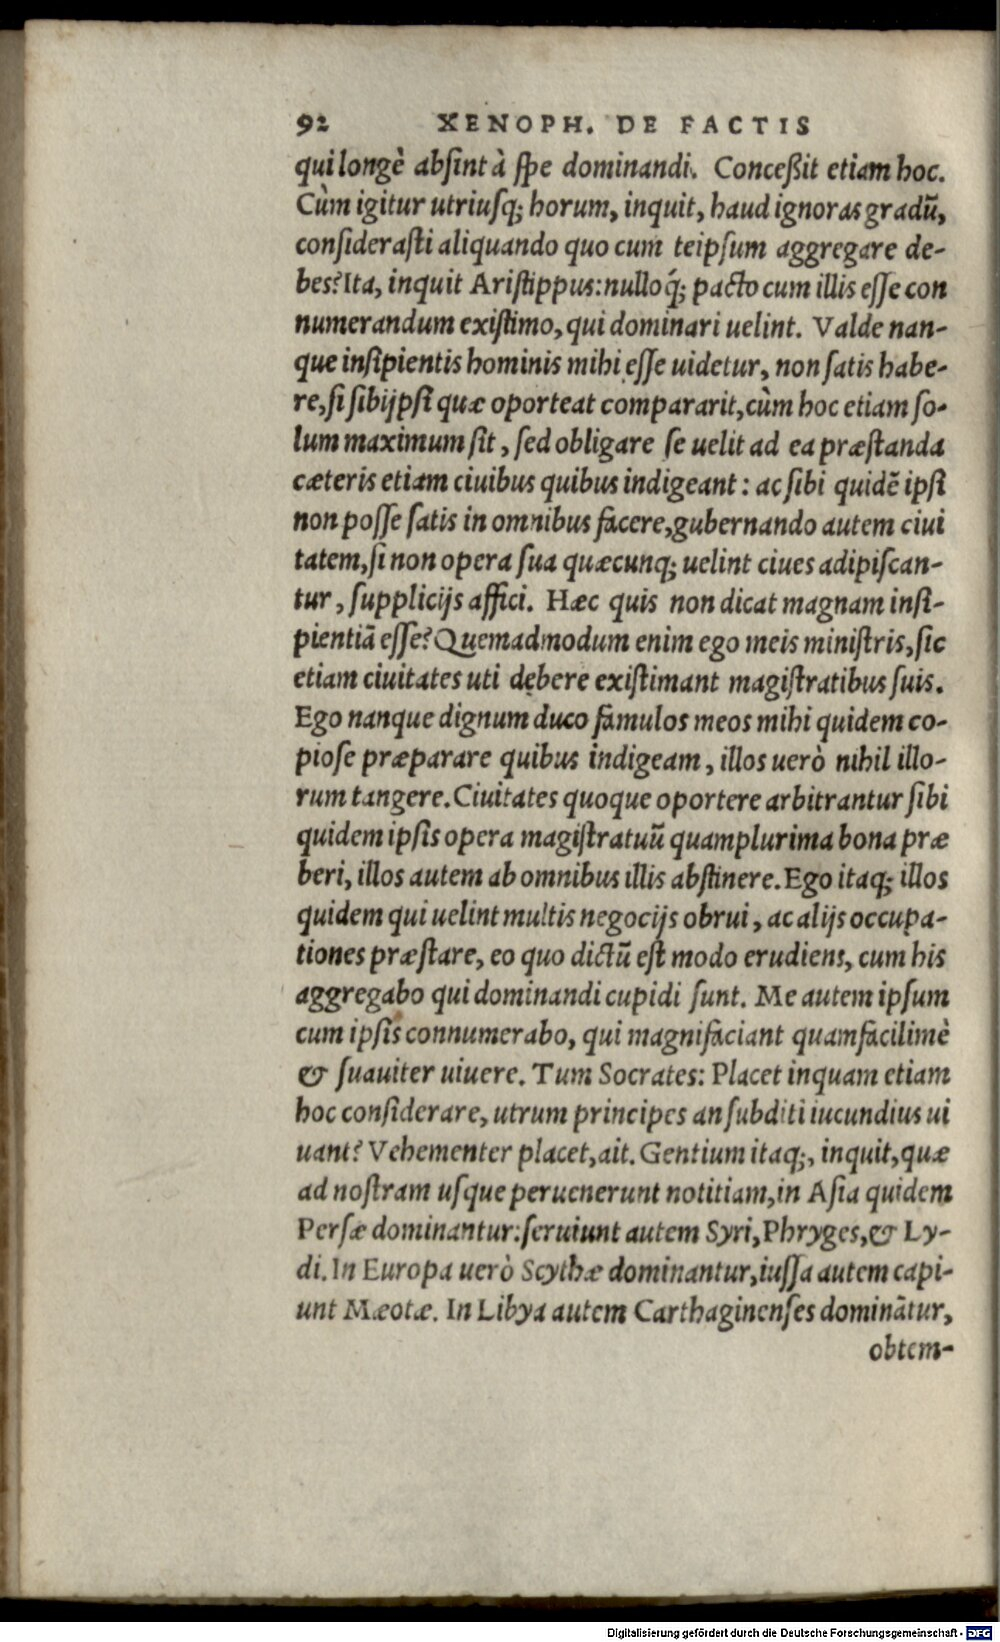 92 XENOPH. DE FACTIS
qui longè absint à spe dominandi. Conceßit etiam hoc.
Cùm igitur utriusq; horum, inquit, haud ignoras gradũ,
considerasti aliquando quo cum teipsum aggregare de-
bes? Ita, inquit Aristippus: nullo q́; pacto cum illis esse con
numerandum existimo, qui dominari uelint. Valde nan-
que insipientis hominis mihi esse uidetur, non satis habe-
re, si sibijpsi quæ oporteat compararit, cùm hoc etiam so-
lum maximum sit, sed obligare se uelit ad ea præstanda
cæteris etiam ciuibus quibus indigeant: ac sibi quidẽ ipsi
non posse satis in omnibus facere, gubernando autem ciui
tatem, si non opera sua quæcunq; uelint ciues adipiscan-
tur, supplicijs affici. Hæc quis non dicat magnam insi-
pientiã esse? Quemadmodum enim ego meis ministris, sic
etiam ciuitates uti debere existimant magistratibus suis.
Ego nanque dignum duco famulos meos mihi quidem co-
piose præparare quibus indigeam, illos uerò nihil illo-
rum tangere. Ciuitates quoque oportere arbitrantur sibi
quidem ipsis opera magistratuũ quamplurima bona præ
beri, illos autem ab omnibus illis abstinere. Ego itaq; illos
quidem qui uelint multis negocijs obrui, ac alijs occupa-
tiones præstare, eo quo dictũ est modo erudiens, cum his
aggregabo qui dominandi cupidi sunt. Me autem ipsum
cum ipsis connumerabo, qui magnifaciant quamfacilimè
& suauiter uiuere. Tum Socrates: Placet inquam etiam
hoc considerare, utrum principes an subditi iucundius ui
uant? Vehementer placet, ait. Gentium itaq;, inquit, quæ
ad nostram usque peruenerunt notitiam, in Asia quidem
Persæ dominantur: seruiunt autem Syri, Phryges, & Ly-
di. In Europa uerò Scythæ dominantur, iussa autem capi-
unt Mæotæ. In Libya autem Carthaginenses dominãtur,
obtem-
Digitalisierung gefördert durch die Deutsche Forschungsgemeinschaft - DFG